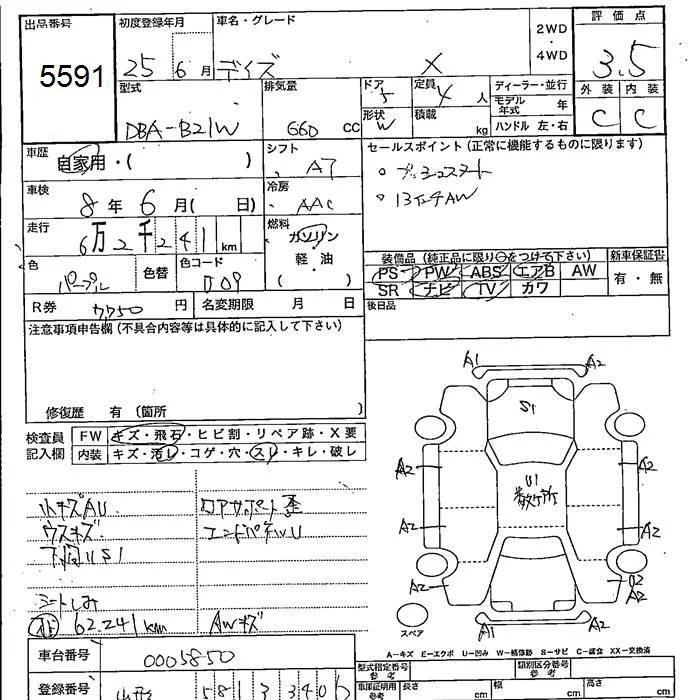 出品番号 5591
初度登録年月 25 6月
車名・グレード デイズ X
2WD・4WD
評価点 3.5
外装 内装
C C
型式 DBA-B21W
排気量 660 cc
ドア 5
形状 W
定員 4 人
積載 kg
ディーラー・並行
モデル年式 年
ハンドル 左・右
車歴 自家用・( )
シフト AT
セールスポイント(正常に機能するものに限ります)
。プッシュスタート
。13インチAW
車検 8年 6月( 日)
冷房 AAC
走行 6万2千241km
燃料 ガソリン
軽・油
( )
色 パープル
色替
色コード
装備品(純正品に限り○をつけて下さい)
PS PW ABS エアB AW
SR ナビ TV カワ
新車保証書
有・無
R券 7,750円
名変期限 月 日
後日品
注意事項申告欄(不具合内容等は具体的に記入して下さい)
修復歴 有 (箇所 )
検査員記入欄
FW キズ・飛石・ヒビ割・リペア跡・X要
内装 キズ・汚レ・コゲ・穴・スレ・キレ・破レ
小キズAU
ウスキズ
下回りS1
シートしみ
62.241km
ロアサポート歪
エンドパネルU
AWキズ
A1 A2
S1
U1
数ヶ所
A2 A2
A2 A2
A2 U2
A2
A1 A2
スペア
A-キズ E-エクボ U-凹み W-補修跡 S-サビ C-腐食 XX-交換済
車台番号 0005850
登録番号 山形 581
型式指定番号 参考
類別区分番号 参考
車庫証明用 参考
長さ cm
幅 cm
高さ cm